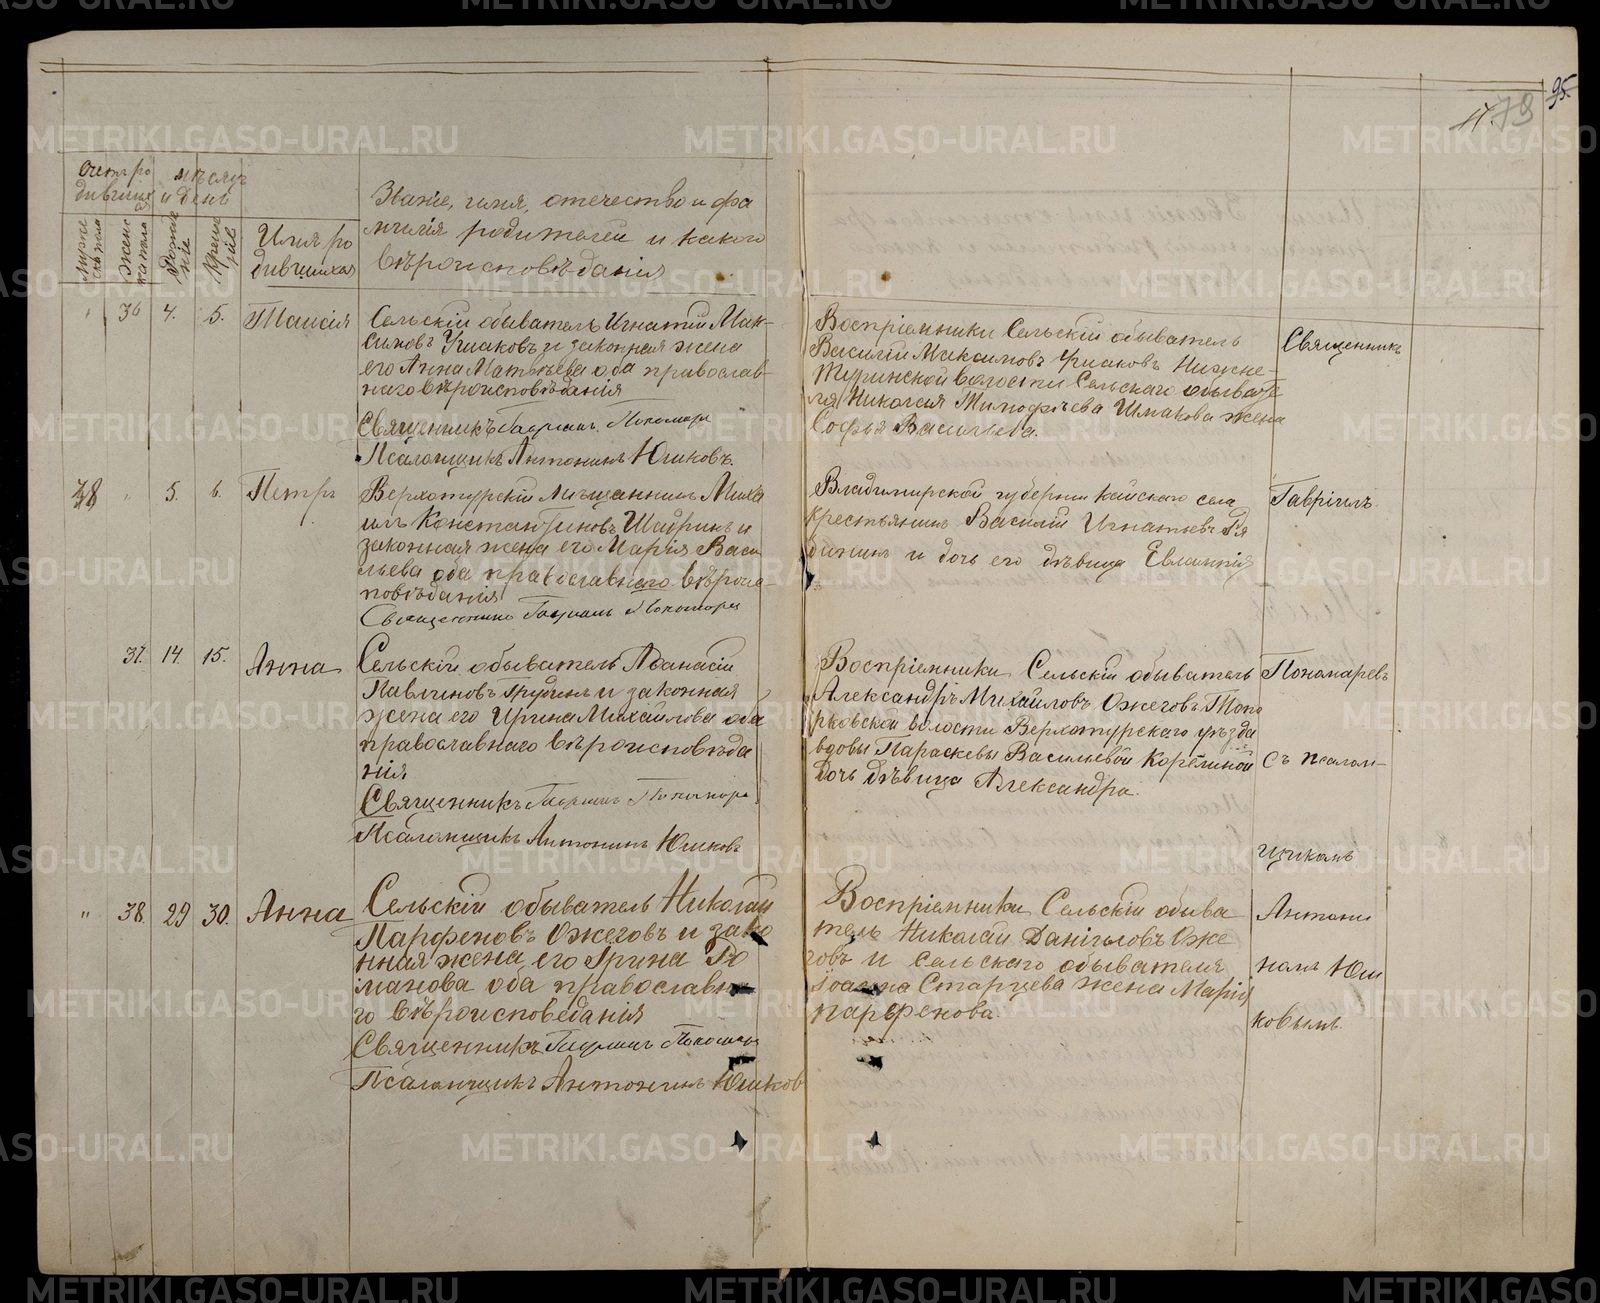 95.
79
Счетъ ро
дившихся
мѣсяцъ
и день
муже
ска пола
женс
ка пола
Рожде
ніе
Креще
ніе
Имя ро
дившихся
Званіе, имя, отечество и фа
милія родителей и какого
вѣроисповѣданія
" 36 4. 5. Таисія
Сельскій обыватель Игнатій Мак-
симовъ Ушаковъ и законная жена
его Анна Матвѣева оба православ-
наго вѣроисповѣданія
Священникъ Гавріилъ Пономаре
Псаломщикъ Антонинъ Юшковъ.
Воспріемники Сельскій обыватель
Василій Максимовъ Ушаковъ Нижне-
Туринской волости Сельскаго обывате
ля Николая Ушакова жена
Софья Васильева.
Священникъ
38 " 5. 6. Петръ
Верхотурскій мѣщанинъ Миха
илъ Константиновъ Шадринъ и
законная жена его Марія Васи
льева оба православнаго вѣроис-
повѣданія
Священникъ Гавріилъ Пономарев
Владимирской губерніи села
крестьянинъ Василій Игнатьевъ
и дочь его дѣвица Евлампія
Гавріилъ
37. 14. 15. Анна
Сельскій обыватель Афанасій
Павлиновъ и законная
жена его Ирина Михайлова оба
православнаго вѣроисповѣда
нія
Священникъ Гавріилъ Пономаре
Псаломщикъ Антонинъ Юшковъ
Воспріемники Сельскій обыватель
Александръ Михайловъ Ожеговъ Топо
рковской волости Верхотурскаго уѣзда
вдовы Параскевы Васильевой Корелиной
дочь дѣвица Александра.
Пономаревъ
съ псалом-
щикомъ
" 38. 29 30. Анна
Сельскій обыватель Николай
Парфеновъ Ожеговъ и зако
нная жена его Ирина Ро
манова оба православна
го вѣроисповеданія
Священникъ Гавріилъ Пономаре
Псаломщикъ Антонинъ Юшков
Воспріемники Сельскій обыва
тель Николай Даніиловъ Оже
говъ и сельскаго обывателя
Іоанна Старцева жена Марія
парфенова.
Антони
номъ Юш
ковымъ.
METRIKI.GASO-URAL.RU